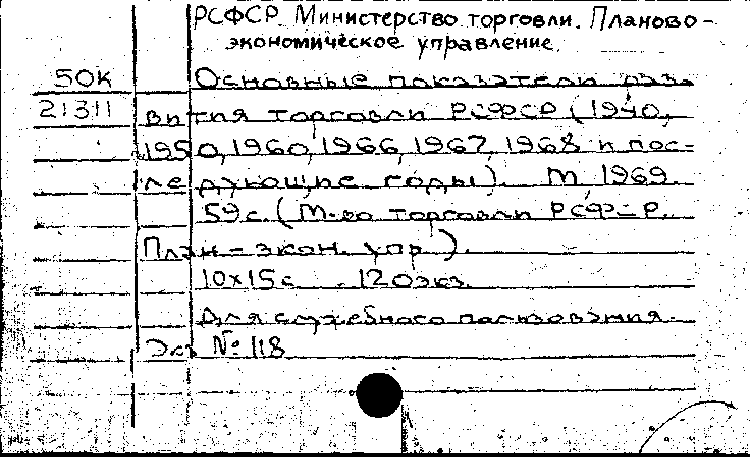 РСФСР. Министерство торговли. Планово-
экономическое управление.
50К Основные показатели раз-
21311 вития торговли РСФСР (1940,
1950, 1960, 1966, 1967, 1968 и пос-
ледующие годы). М, 1969.
59 с. (М-во торговли РСФСР.
План-экон. упр.).
10х15с. 120экз.
Для служебного пользования.
Экз № 118